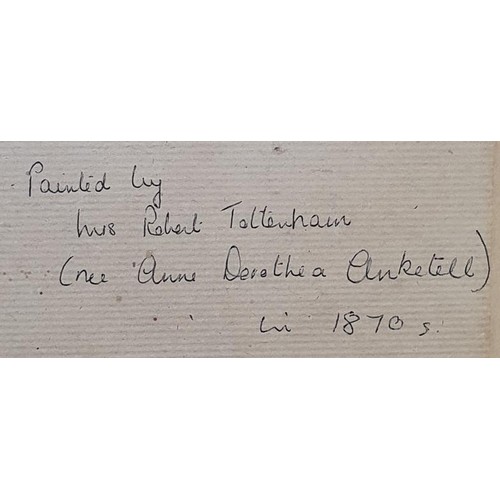 Painted by
Mrs Robert Tottenham
(nee Anne Dorothea Anketell)
in 1870s.